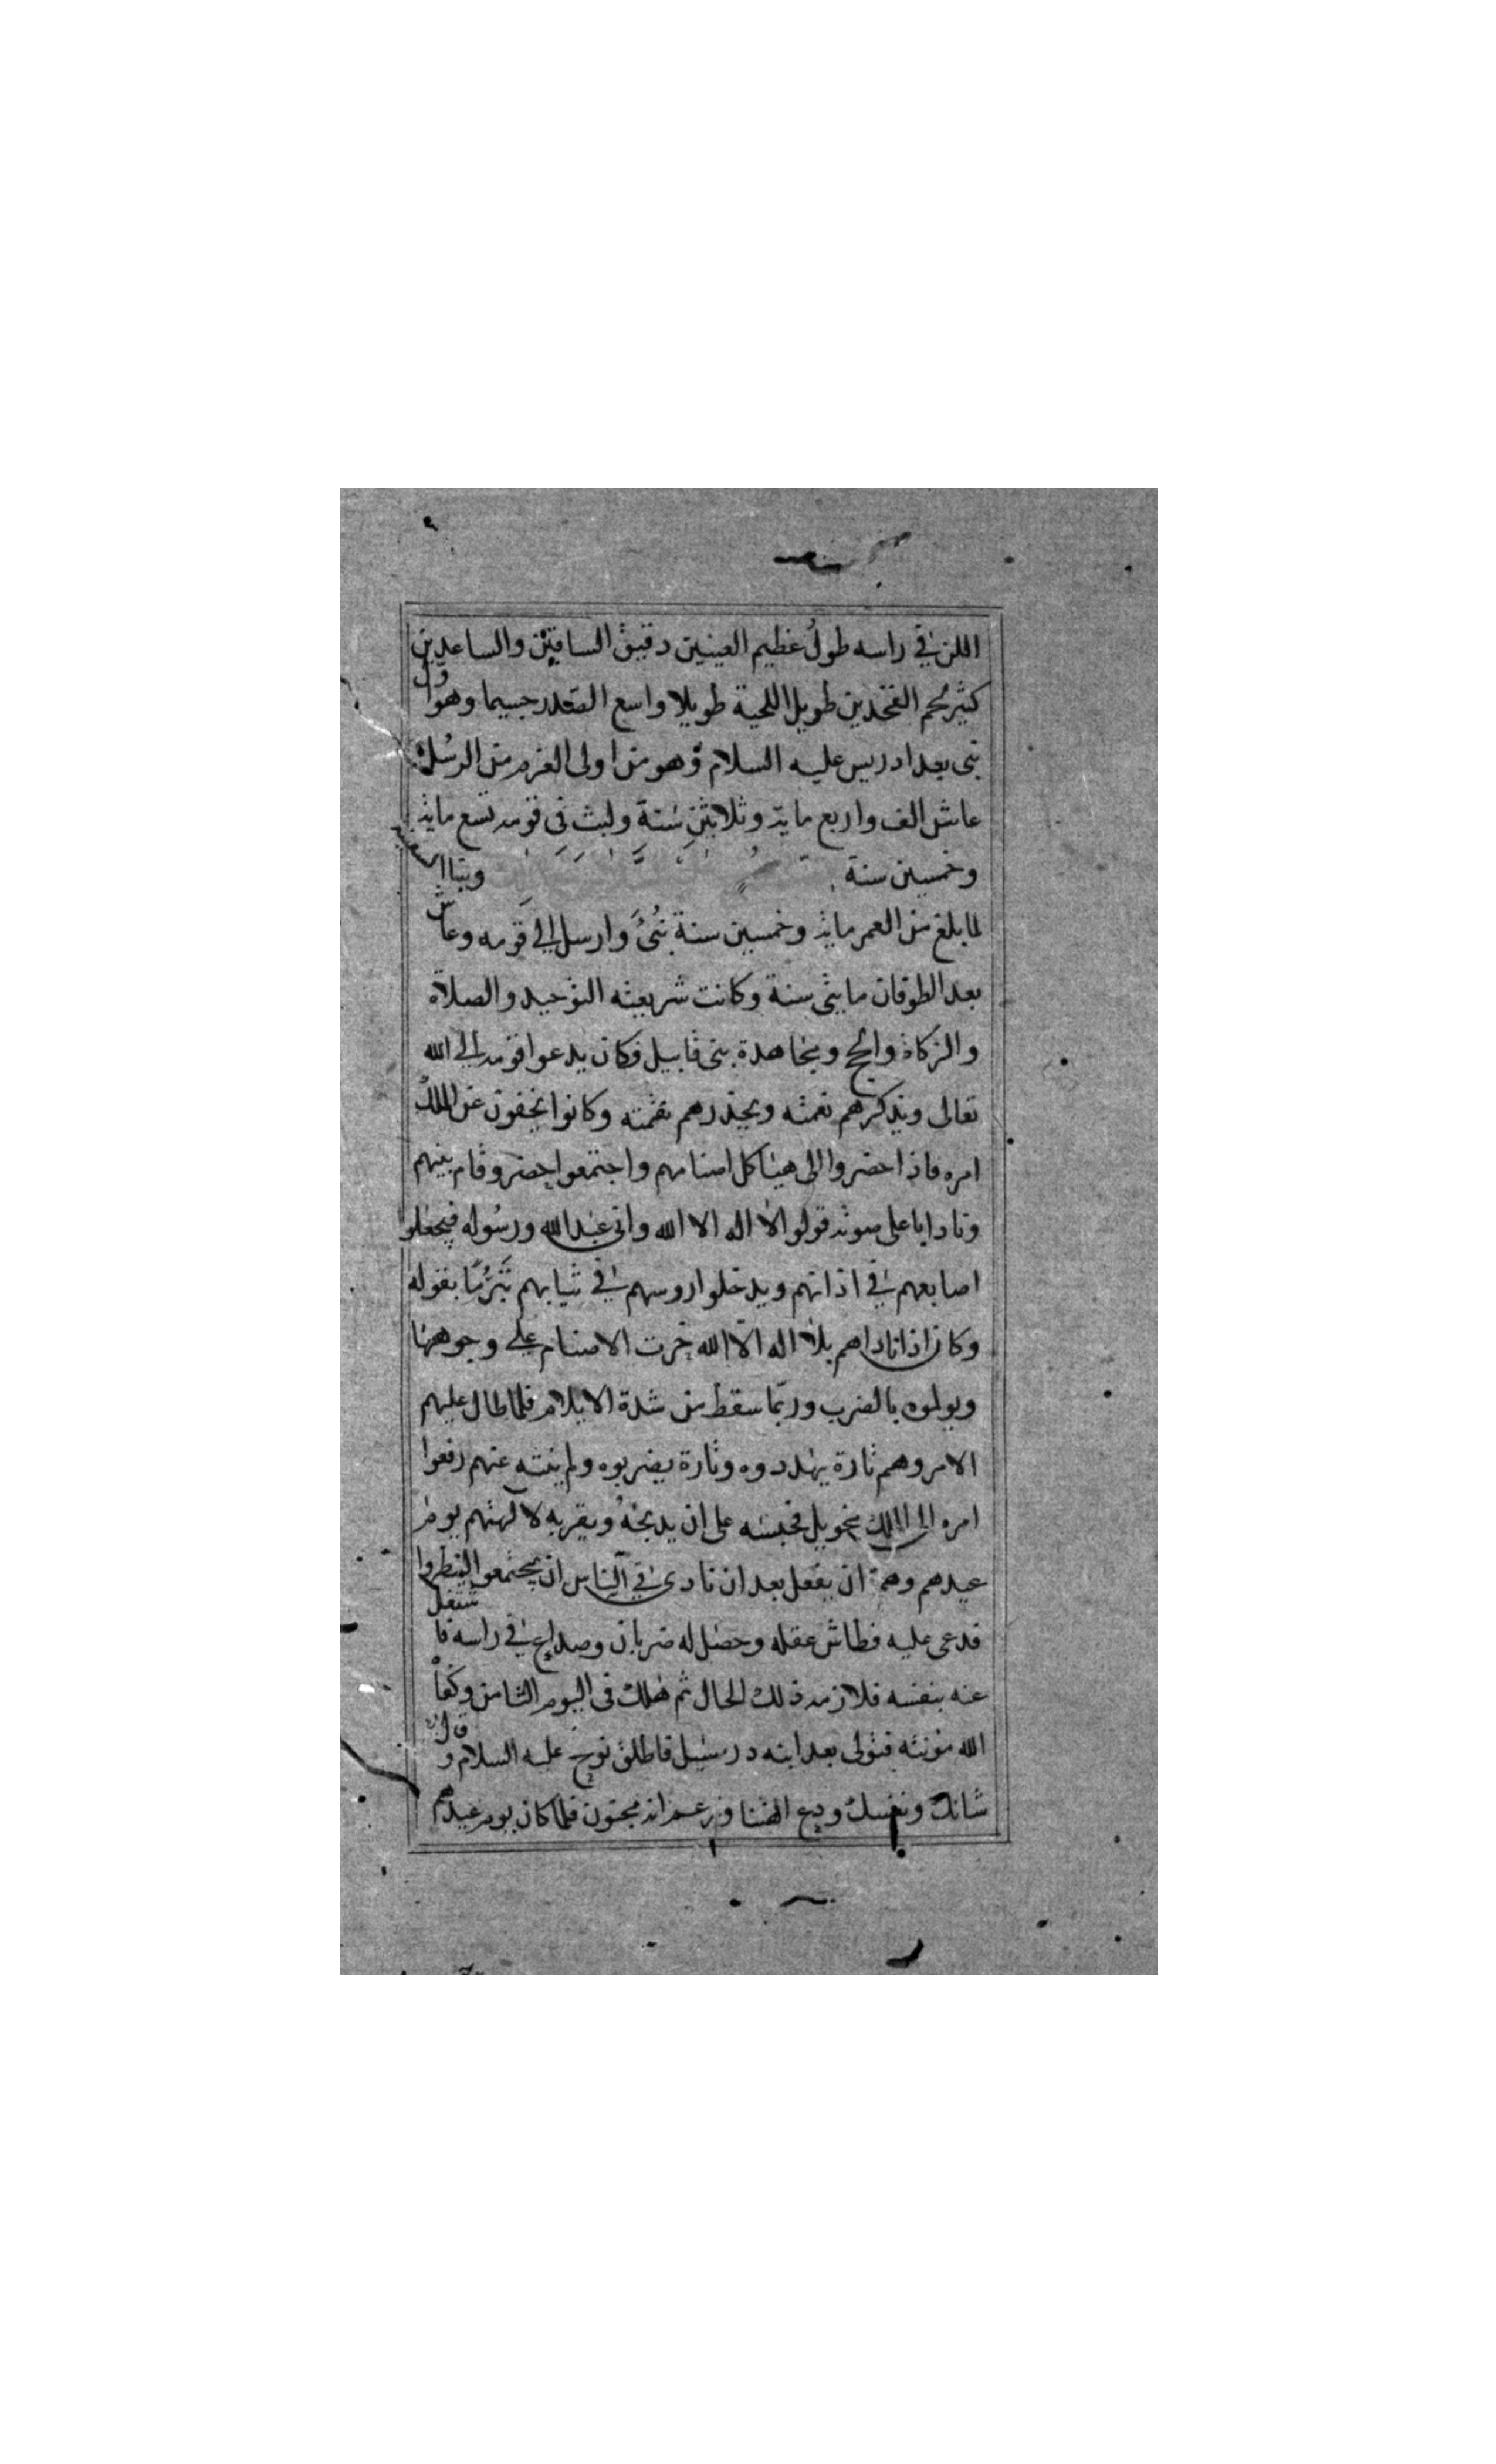 اللن في راسه طول عظيم العينين دقيق الساقين والساعدين
كثير لحم الفخذين طويل اللحية طويلا واسع الصدر جسيما وهو اول
نبى بعد ادريس عليه السلام وهو من اولى العزم من الرسل
عاش الف واربع ماية وثلاثين سنة ولبث في قومه تسع ماية
وخمسين سنة
لما بلغ من العمر ماية وخمسين سنة نبئ وارسل الى قومه وعاش
بعد الطوفان مايتى سنة وكانت شريعته التوحيد والصلاة
والزكاة والحج ومجاهدة بنى قابيل فكان يدعوا قومه الى الله
تعالى ويذكرهم نعمته ويحذرهم نقمته وكانوا يخفون عن الملك
امره فاذا حضروا الى هياكل اصنامهم واجتمعوا حضر وقام بينهم
ونادا باعلى صوته قولوا لا اله الا الله وانى عبد الله ورسوله فيجعلو
اصابعهم في اذانهم ويدخلوا روسهم في ثيابهم تبرما بقوله
وكان اذا ناداهم بلا اله الا الله خرت الاصنام على وجوهها
ويولموه بالضرب وربما سقط من شدة الايلام فلما طال عليهم
الامر وهم تارة يهددوه وتارة يضربوه ولم ينته عنهم رفعوا
امره الى الملك مخويل فحبسه على ان يذبحه ويقربه لالهتهم يوم
عيدهم وهم ان يفعل بعد ان نادى في الناس ان يجتمعوا لينظروا
فدعى عليه فطاش عقله وحصل له ضربان وصداع في راسه فاشتغل
عنه بنفسه فلازمه ذلك الحال ثم هلك فى اليوم الثامن وكفا
الله مونته فتولى بعد ابنه درمسيل فاطلق نوح عليه السلام وقال
شانك ونفسك ودع الهتنا وزعم انه مجنون فلما كان يوم عيدهم